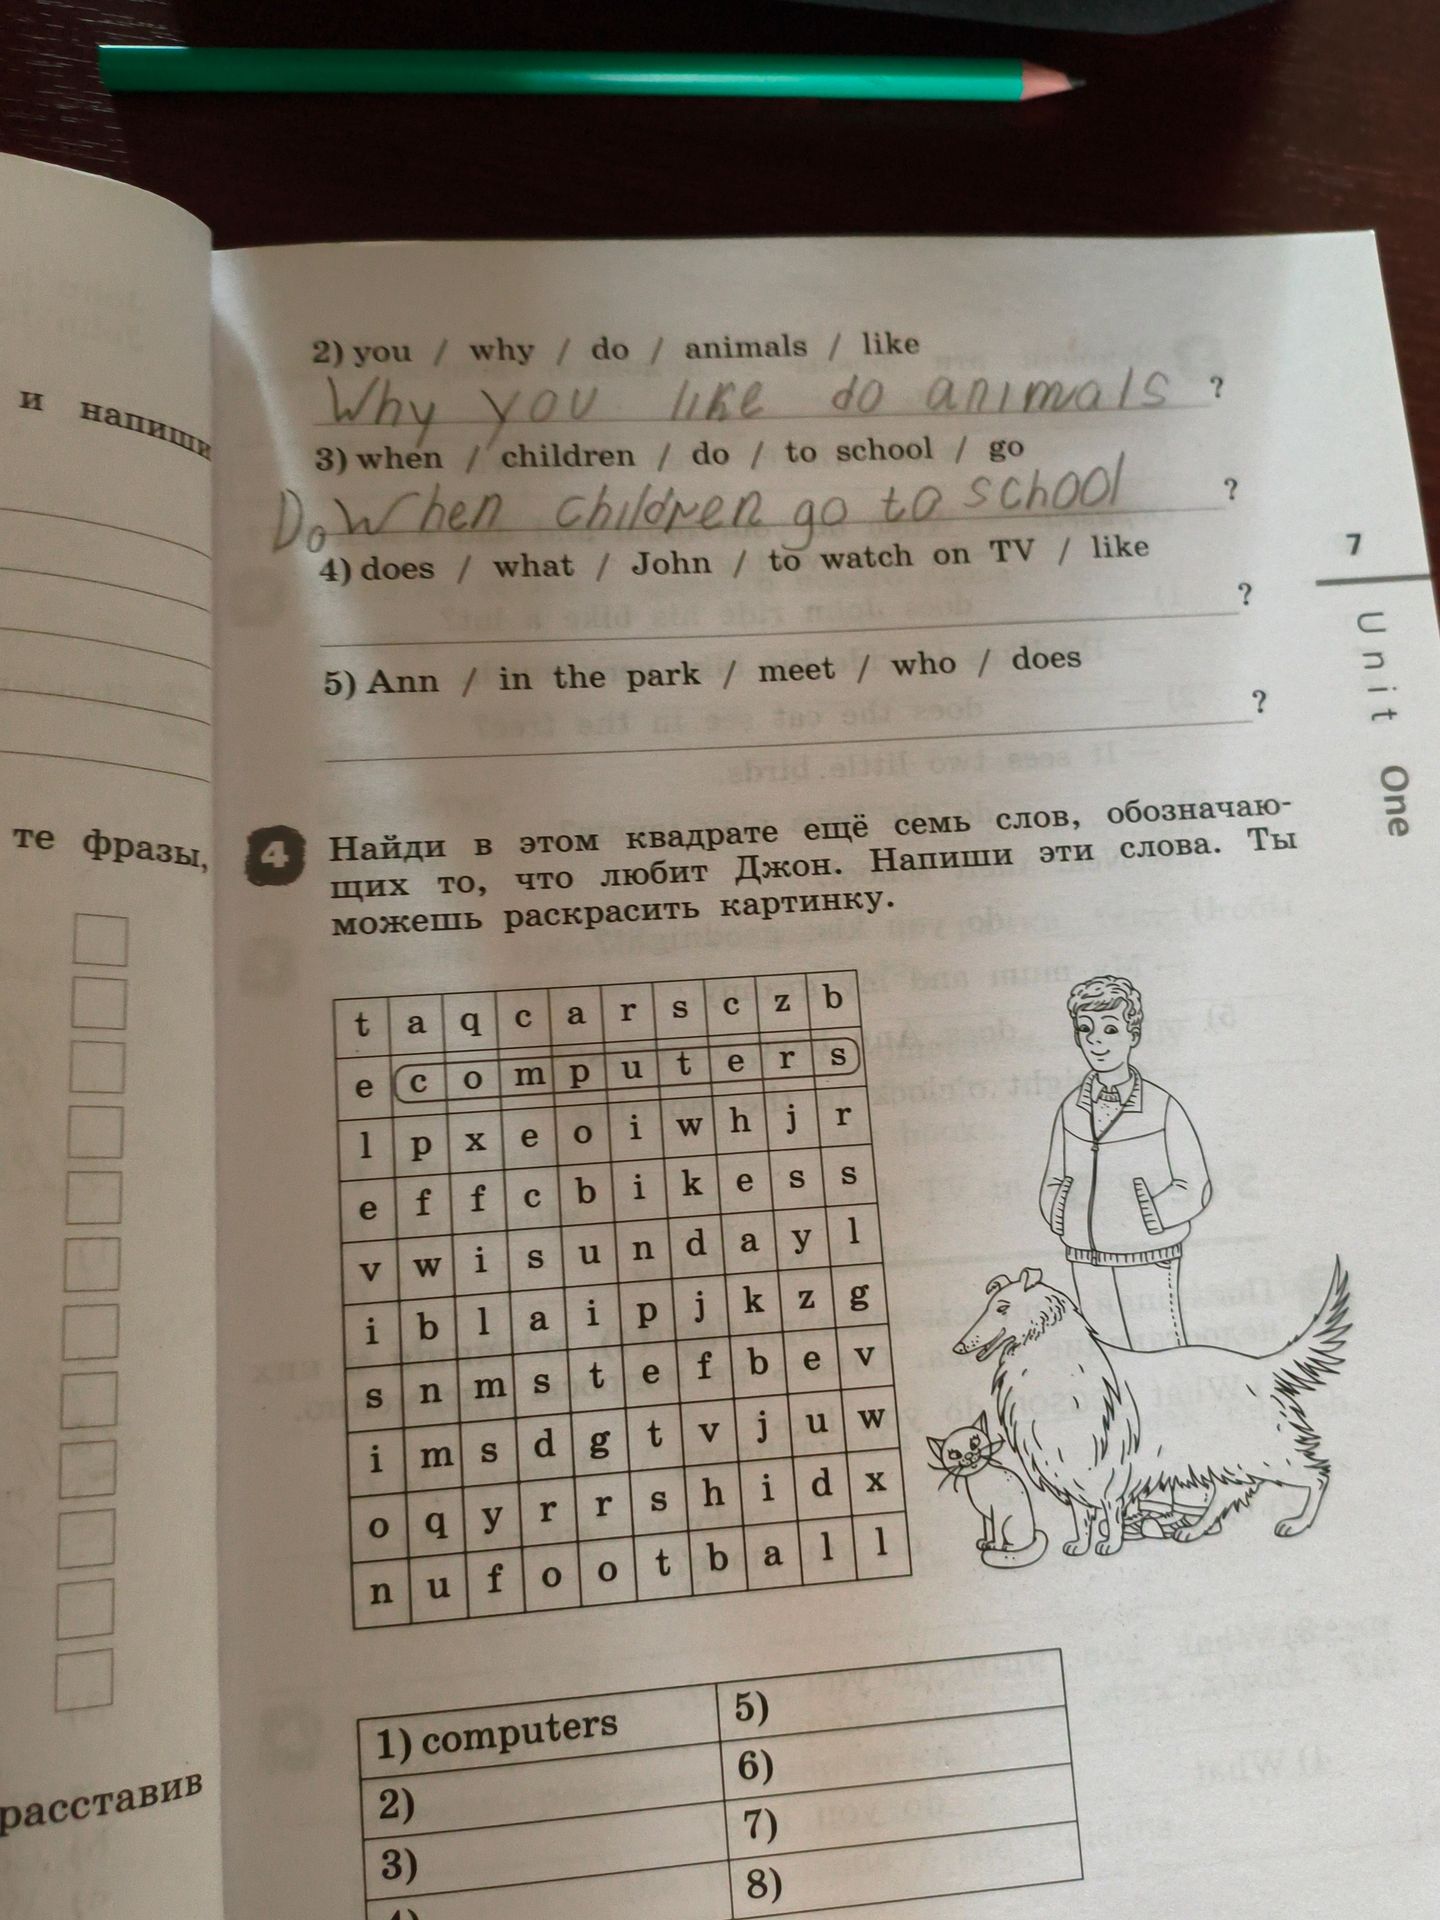 2) you / why / do / animals / like
Why you like do animals ?
3) when / children / do / to school / go
Do When children go to school ?
4) does / what / John / to watch on TV / like
?
5) Ann / in the park / meet / who / does
?
7
Unit One
и напиши
те фразы,
расставив
4 Найди в этом квадрате ещё семь слов, обозначаю-
щих то, что любит Джон. Напиши эти слова. Ты
можешь раскрасить картинку.
t a q c a r s c z b
e c o m p u t e r s
l p x e o i w h j r
e f f c b i k e s s
v w i s u n d a y l
i b l a i p j k z g
s n m s t e f b e v
i m s d g t v j u w
o q y r r s h i d x
n u f o o t b a l l
1) computers 5)
2) 6)
3) 7)
4) 8)